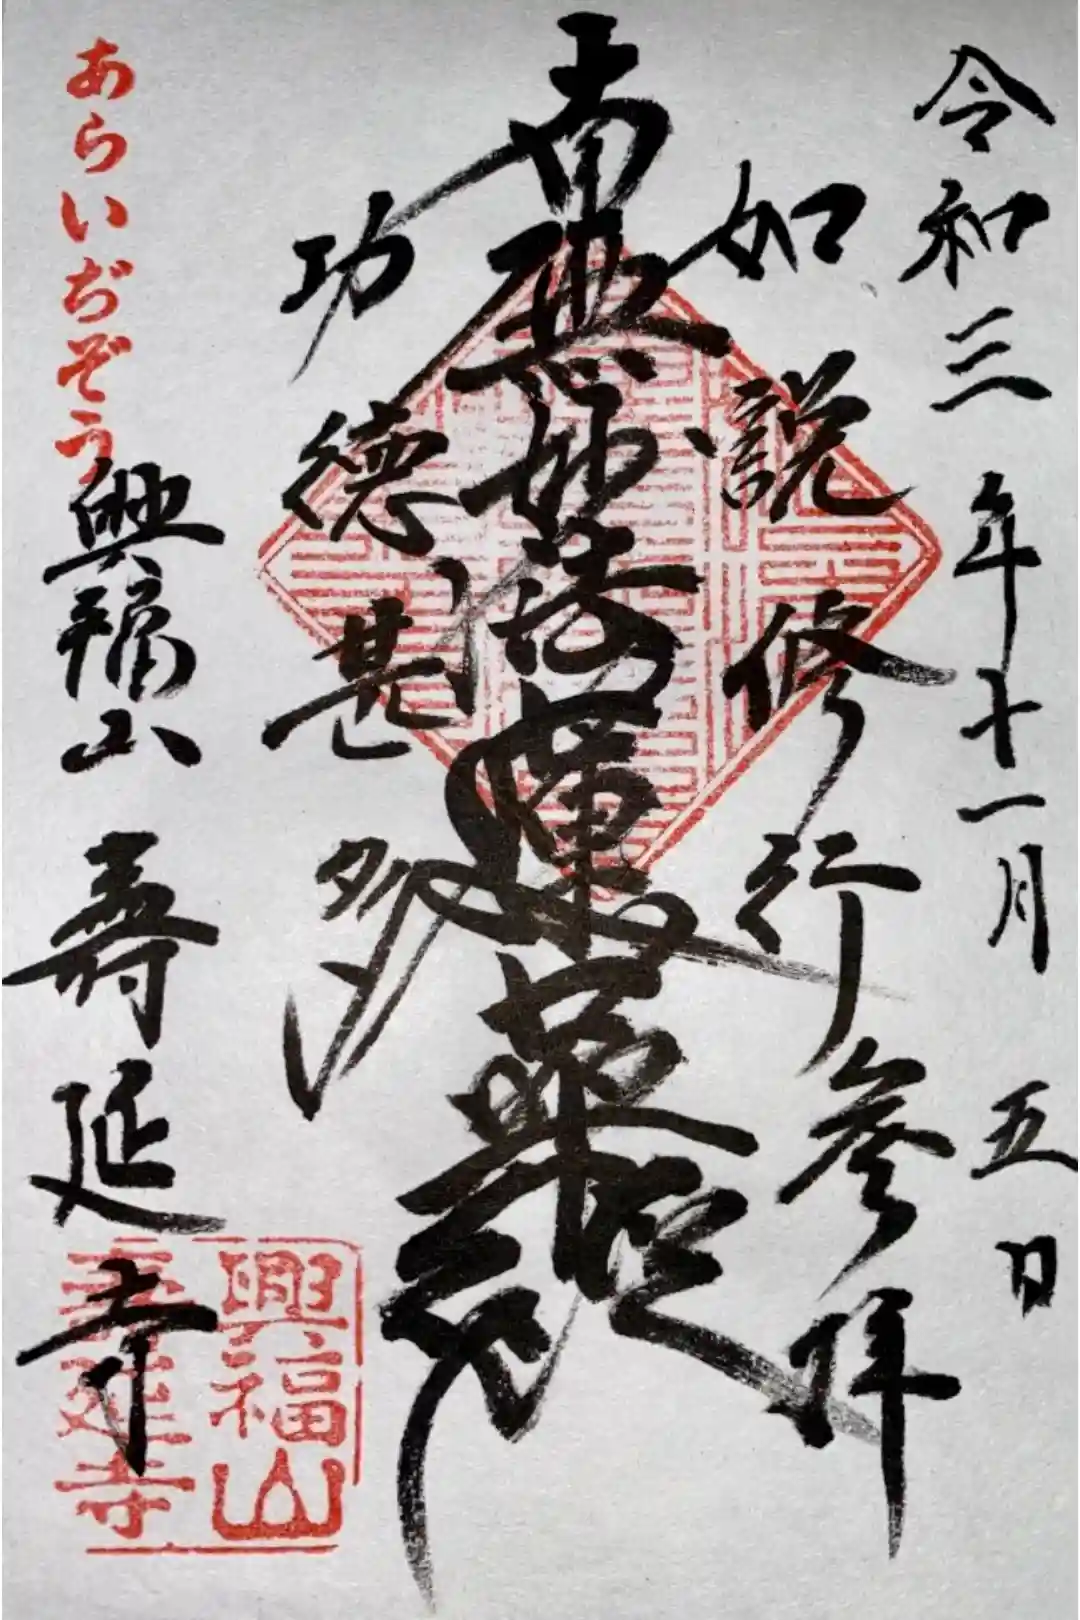 令和三年十一月五日
如説修行参拝
南無妙法蓮華経
功徳甚多
あらいぢぞう
興福山 壽延寺
興福山
壽延寺